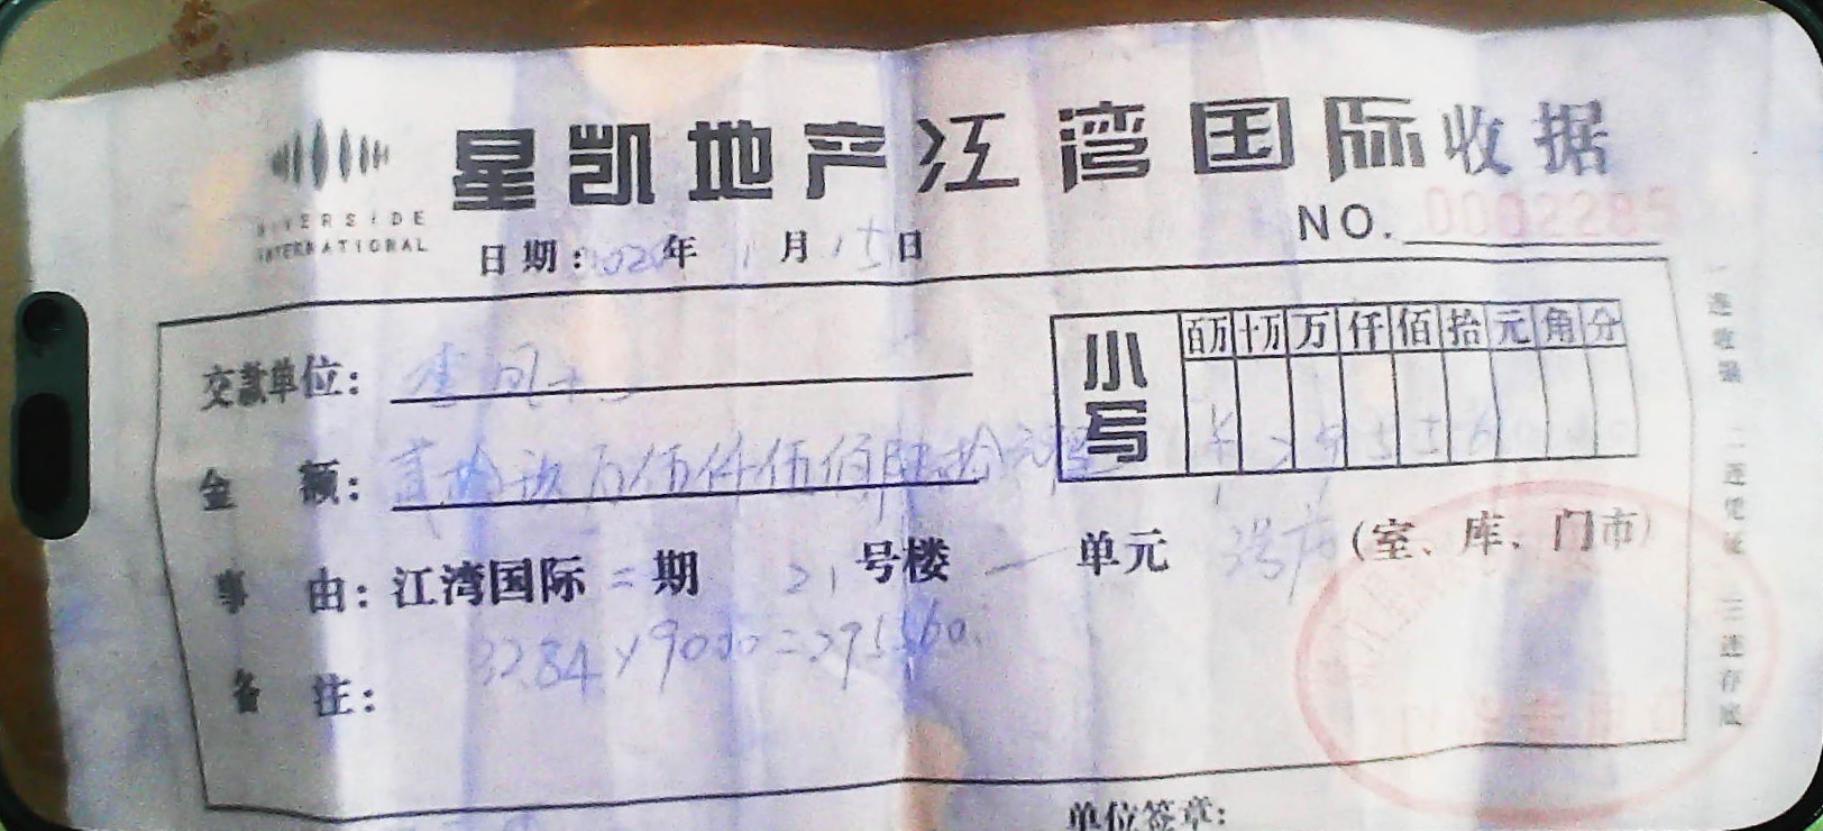 星凯地产江湾国际收据
RIVERSIDE
INTERNATIONAL
NO. 0002285
日期: 年 1月15日
交款单位: 李凤
金额: 贰拾玖万伍仟伍佰陆拾元整
小写
百万 十万 万 仟 佰 拾 元 角 分
¥ 2 9 5 5 6 0 0 0
事由: 江湾国际二期 21号楼 一单元 (室、库、门市)
32.84×9000=295560.
备注:
单位签章:
一连收据 二连凭证 三连存底